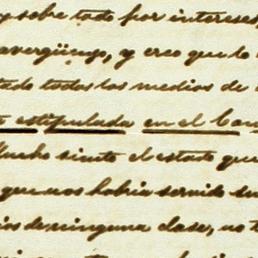 y sobre todo por intereses,
avergüenzo, y creo que lo
tado todos los medios de
estipulada en el
Mucho siento el estado que
que nos habia servido
ios de ninguna clase, no